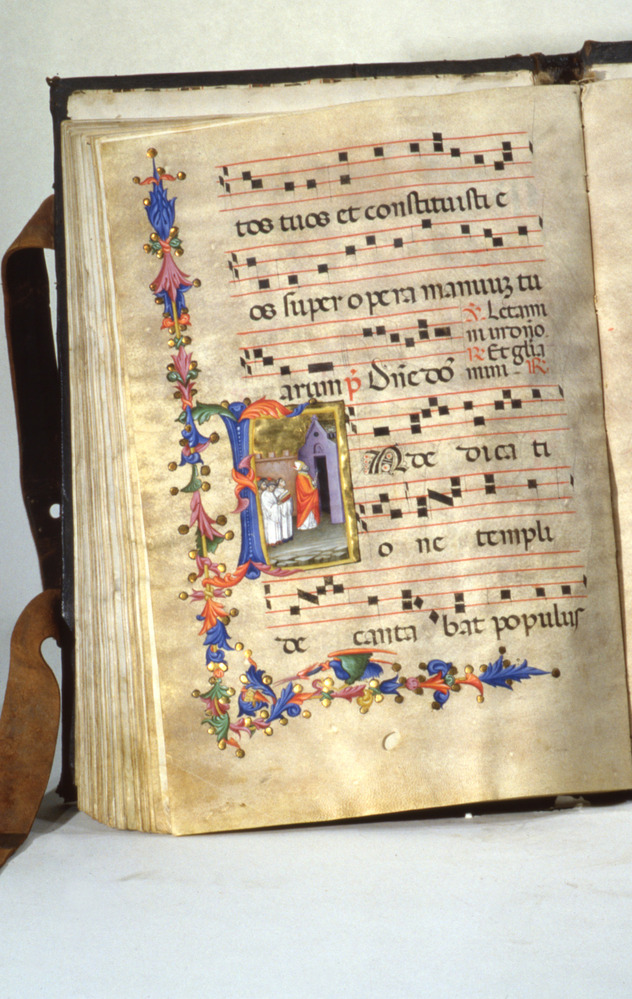 tos tuos et constituisti e
os super opera manuuʒ tu
℣. Letami
ni urdnō.
℟. Et glia
arum p̄ Dn̄e dō mini - ℟.
IN de dica ti
o ne templi
de canta bat populus